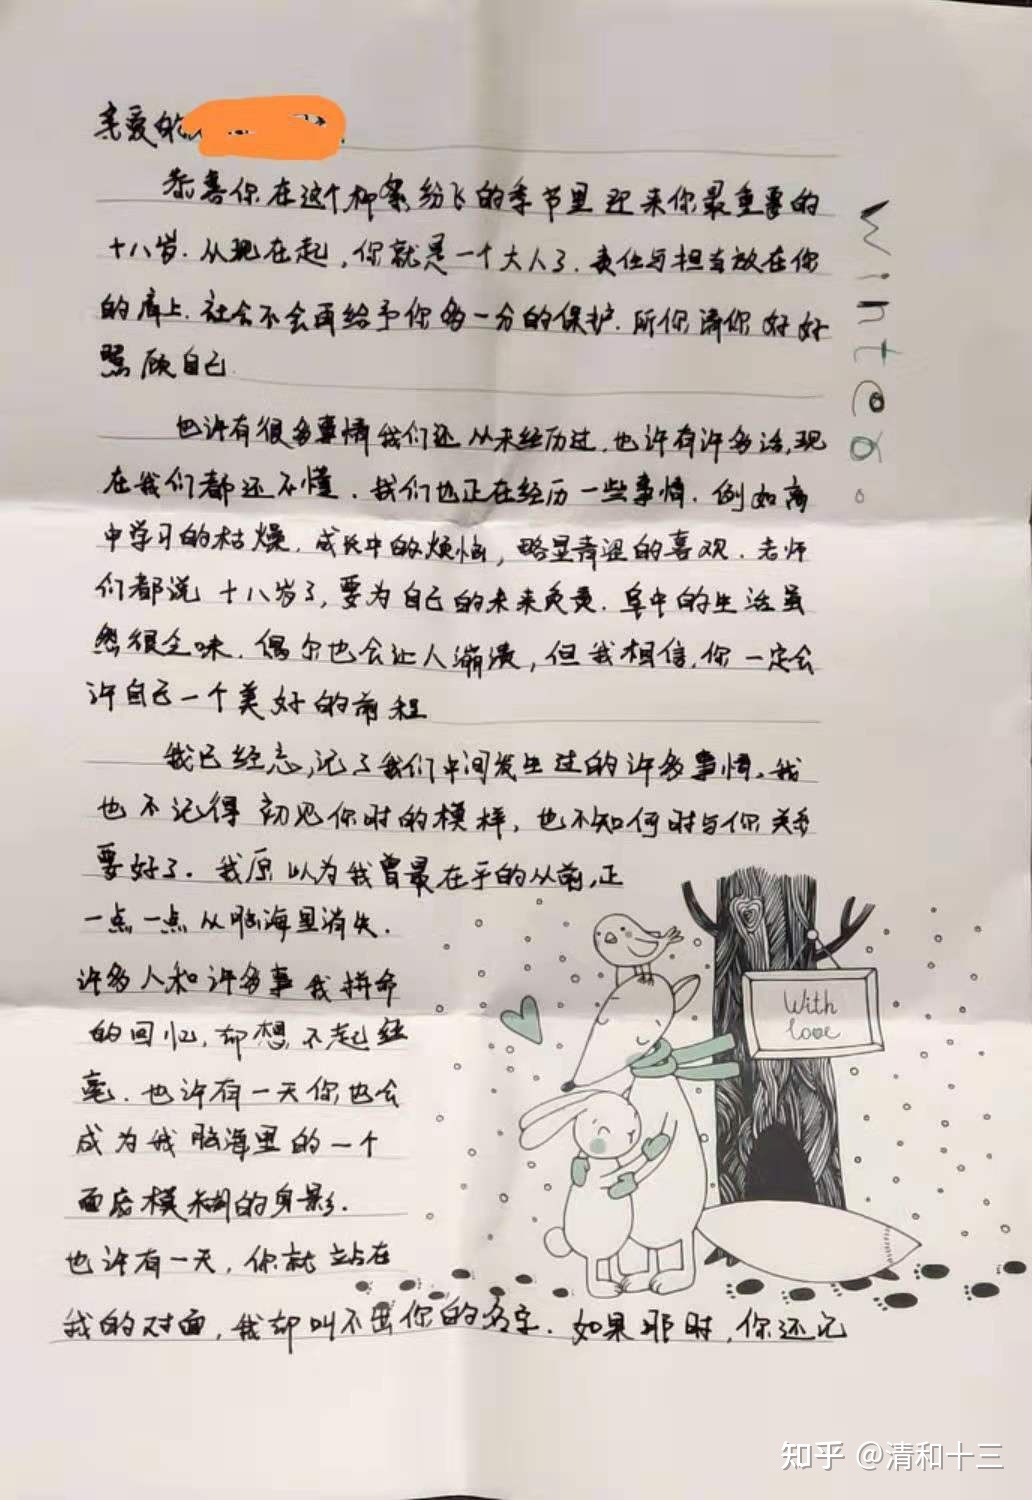 亲爱的
恭喜你在这个柳絮纷飞的季节里迎来你最重要的
十八岁.从现在起,你就是一个大人了.责任与担当放在你
的肩上.社会不会再给予你多一分的保护.所你请你好好
照顾自己
也许有很多事情我们还从未经历过.也许有许多话,现
在我们都还不懂.我们也正在经历一些事情.例如高
中学习的枯燥.成长中的烦恼,略显青涩的喜观.老师
们都说十八岁了,要为自己的未来负责.阜中的生活虽
然很乏味.偶尔也会让人崩溃,但我相信,你一定会
许自己一个美好的前程
我已经忘记了我们中间发生过的许多事情.我
也不记得初见你时的模样,也不知何时与你关系
要好了.我原以为我曾最在乎的从前,正
一点一点从脑海里消失.
许多人和许多事我拼命
的回忆,却想不起丝
毫.也许有一天你也会
成为我脑海里的一个
面店模糊的身影.
也许有一天,你就站在
我的对面,我却叫不出你的名字.如果那时,你还记
With
love
知乎 @清和十三